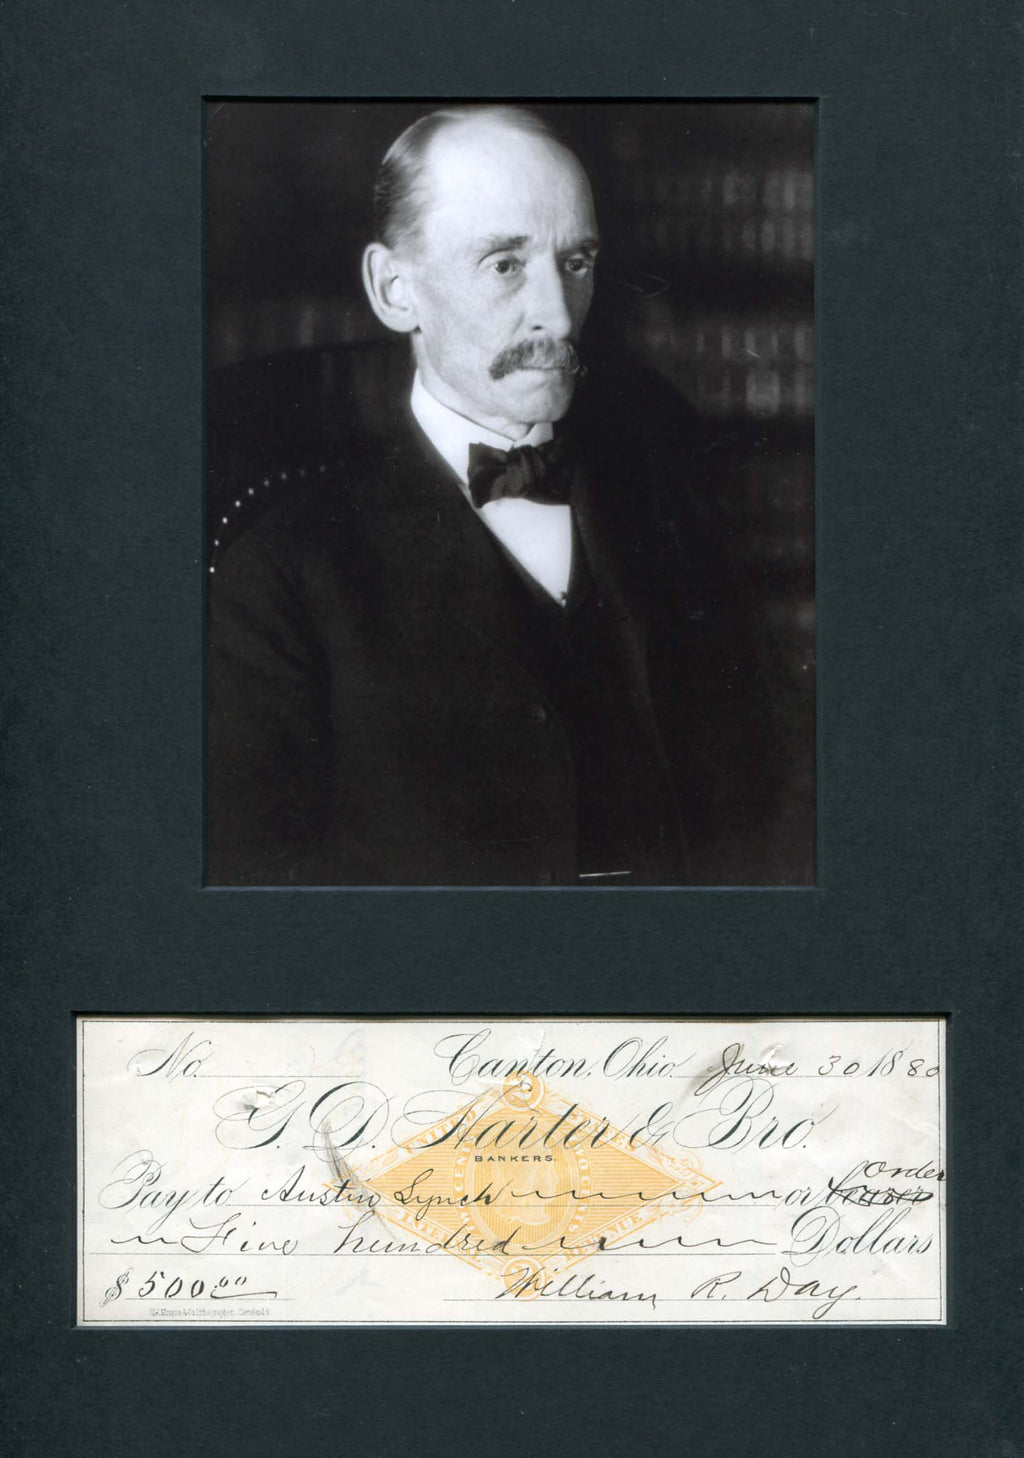 No. Canton, Ohio. June 30 1880
G. D. Harter & Bro.
BANKERS.
Pay to Austin Lynch or bearer Order
Five hundred Dollars
$500.00 William R. Day.